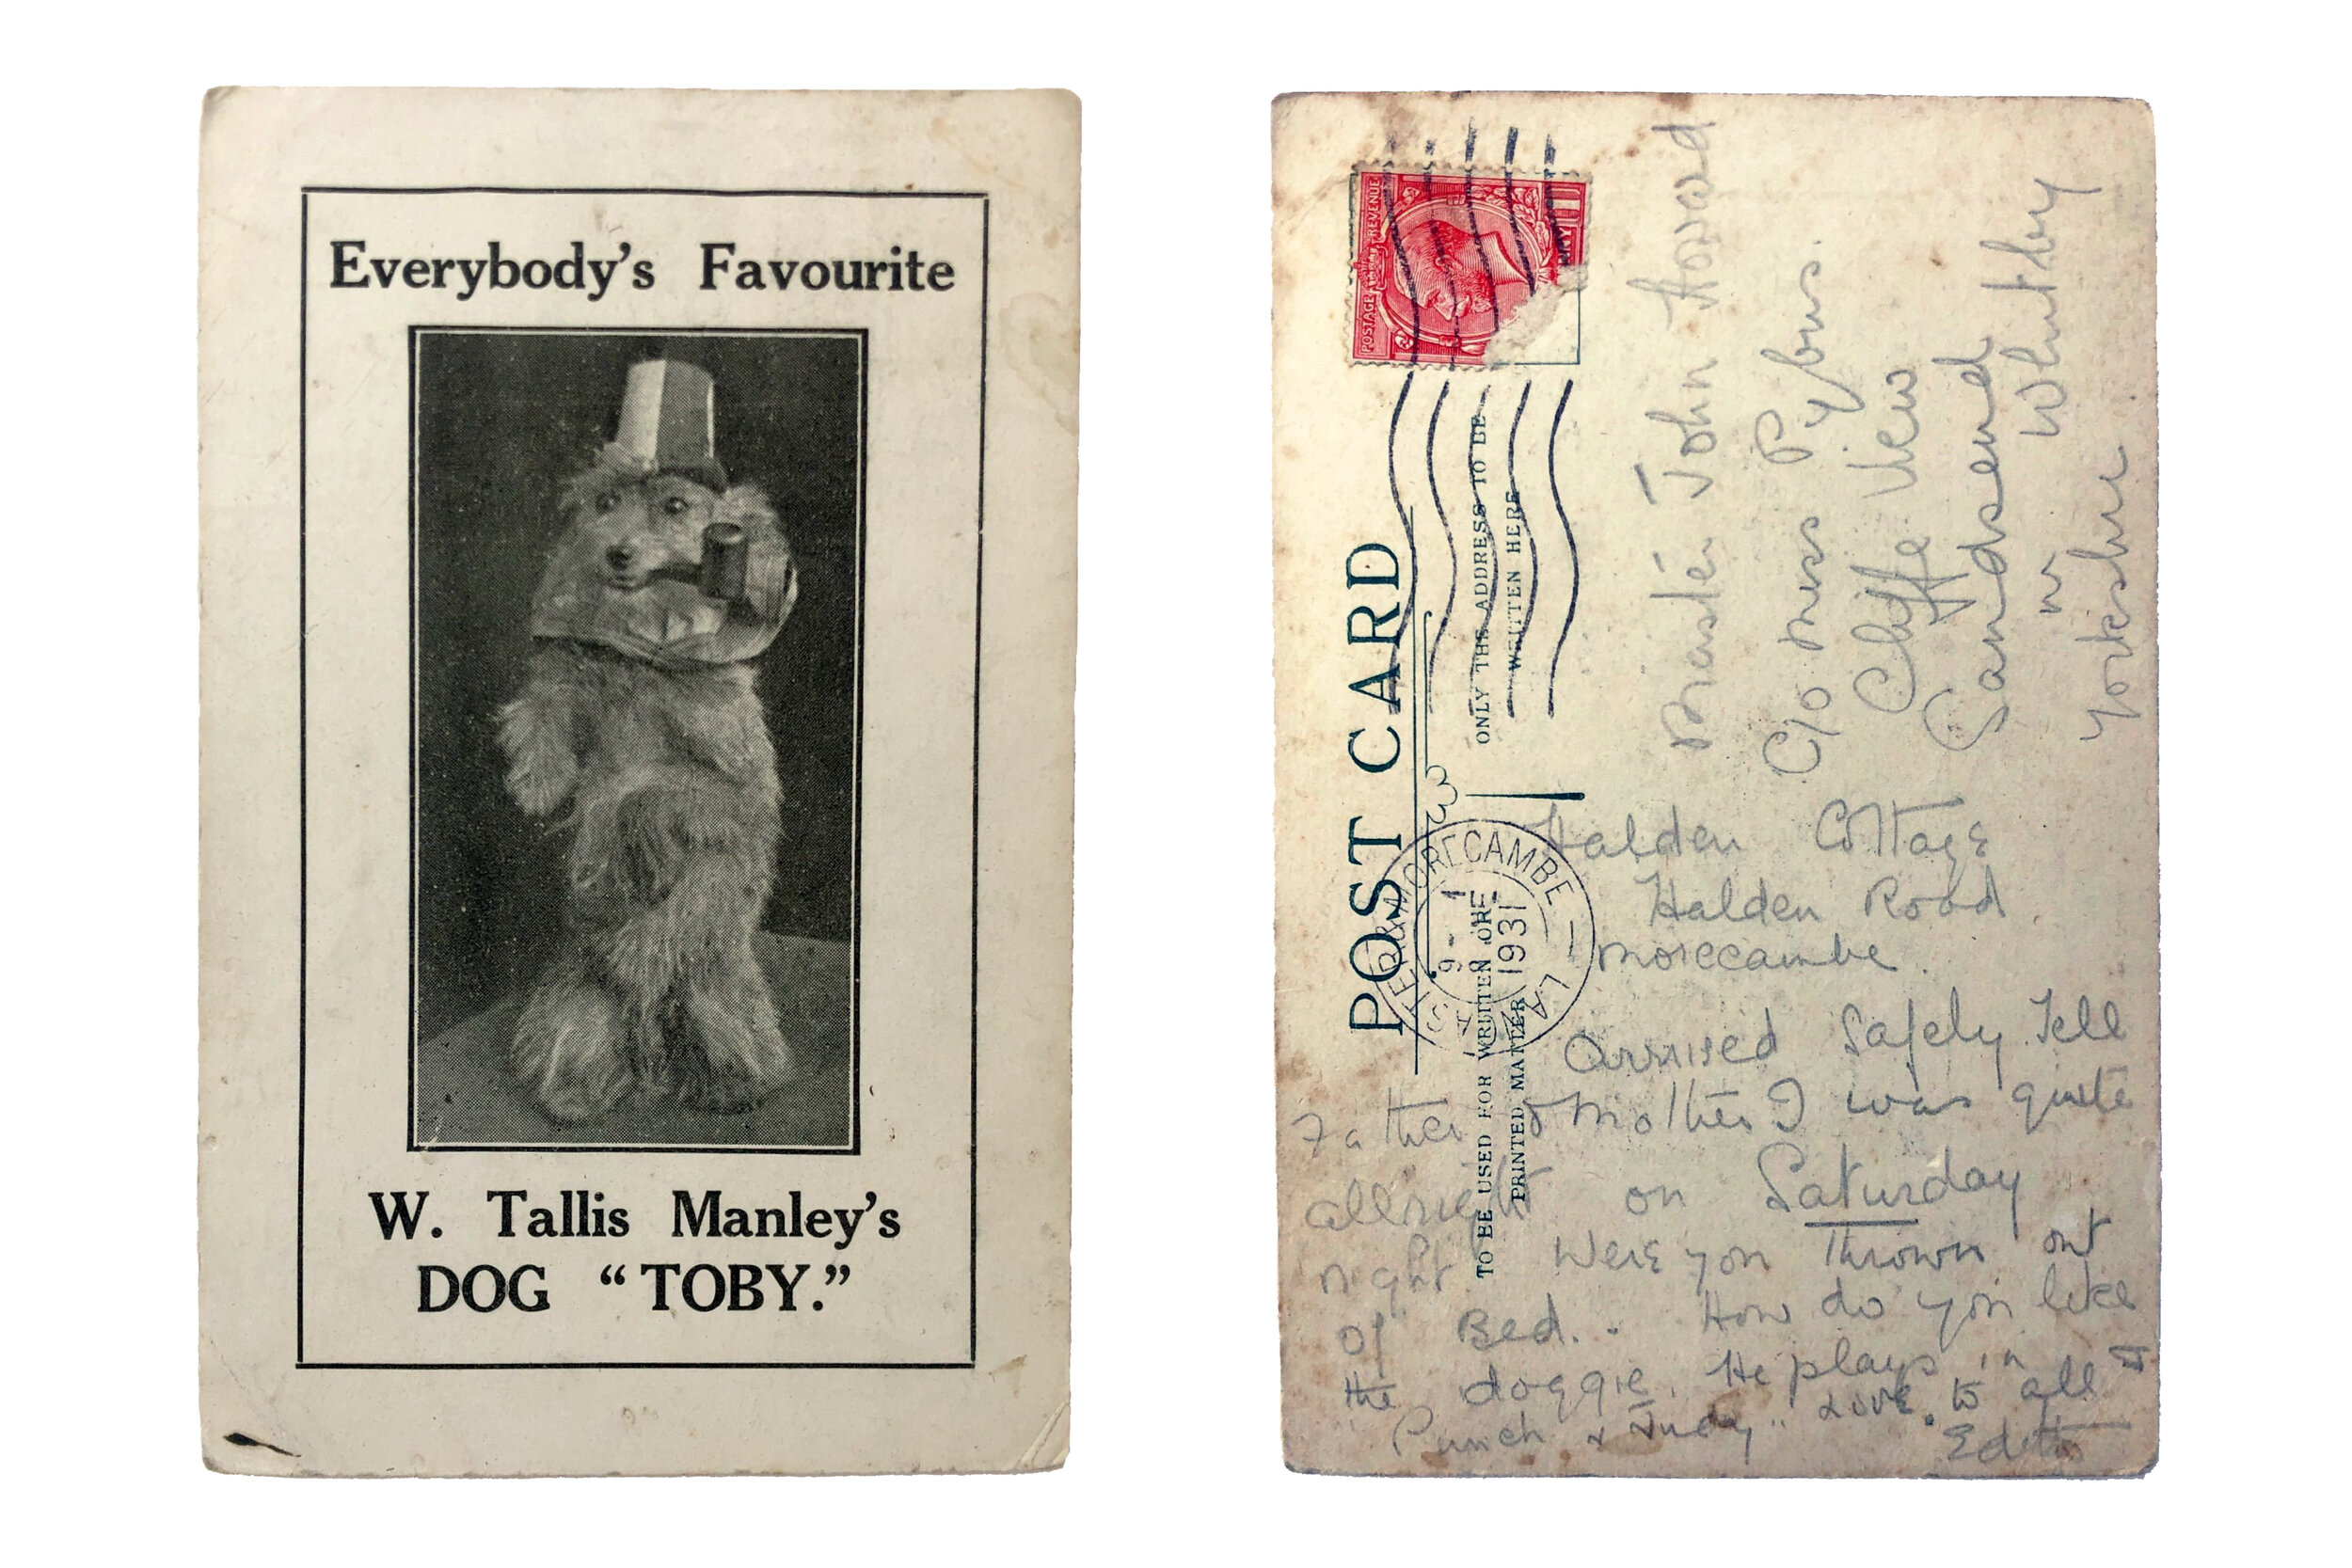 Everybody's Favourite
W. Tallis Manley's
DOG "TOBY."
POST CARD
TO BE USED FOR WRITTEN OR
PRINTED MATTER
ONLY THE ADDRESS TO BE
WRITTEN HERE
POSTAGE REVENUE
MORECAMBE
LA
9-
1931
Master John Howard
C/o Miss Pybus.
Cliffe View
Sandsend
Nr Whitby
Yorkshire
Halden Cottage
Halden Road
Morecambe.
Arrived Safely. Tell
Father & Mother I was quite
allright on Saturday
night Were you thrown out
of Bed.. How do you like
the doggie. He plays in
"Punch & Judy" Love to all
Edith